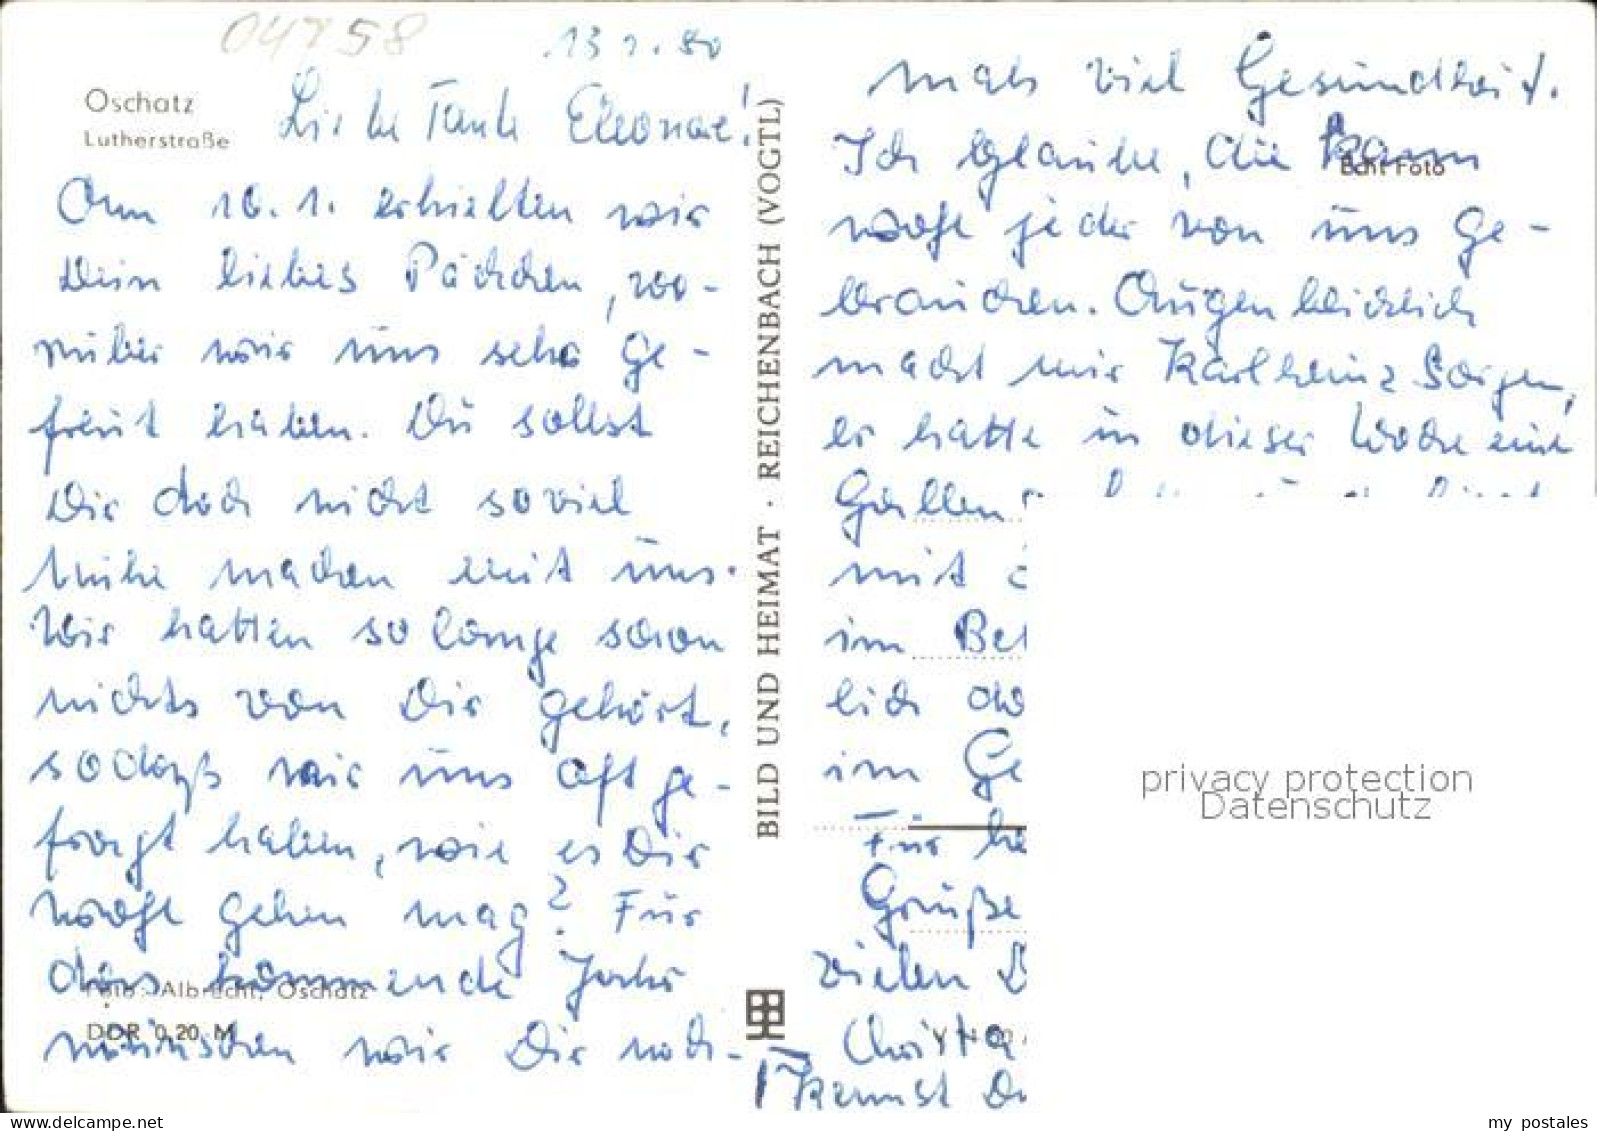 04758
13 1. 80
Oschatz
Lutherstraße
Liebe Tante Eleonore!
Am 10. 1. erhielten wir
Dein liebes Päckchen, wo-
rüber wir uns sehr ge-
freut haben. Du sollst
Dir doch nicht soviel
Mühe machen mit uns.
Wir hatten so lange schon
nichts von Dir gehört,
sodaß wir uns oft ge-
fragt haben, wie es Dir
wohl gehen mag? Für
das kommende Jahr
Foto: Albrecht, Oschatz
DDR 0,20 M
wünschen wir Dir noch-
BILD UND HEIMAT · REICHENBACH (VOGTL)
mals viel Gesundheit.
Ich glaube, die kann
Echt Foto
wohl jeder von uns ge-
brauchen. Augenblicklich
macht mir Karlheinz Sorgen,
er hatte in dieser Woche eine
Gallen
mit
im Bet
lich
im Ge
Für
Grüße
vielen
Christa
kannst Du
privacy protection
Datenschutz
delcampe.net
my_postales